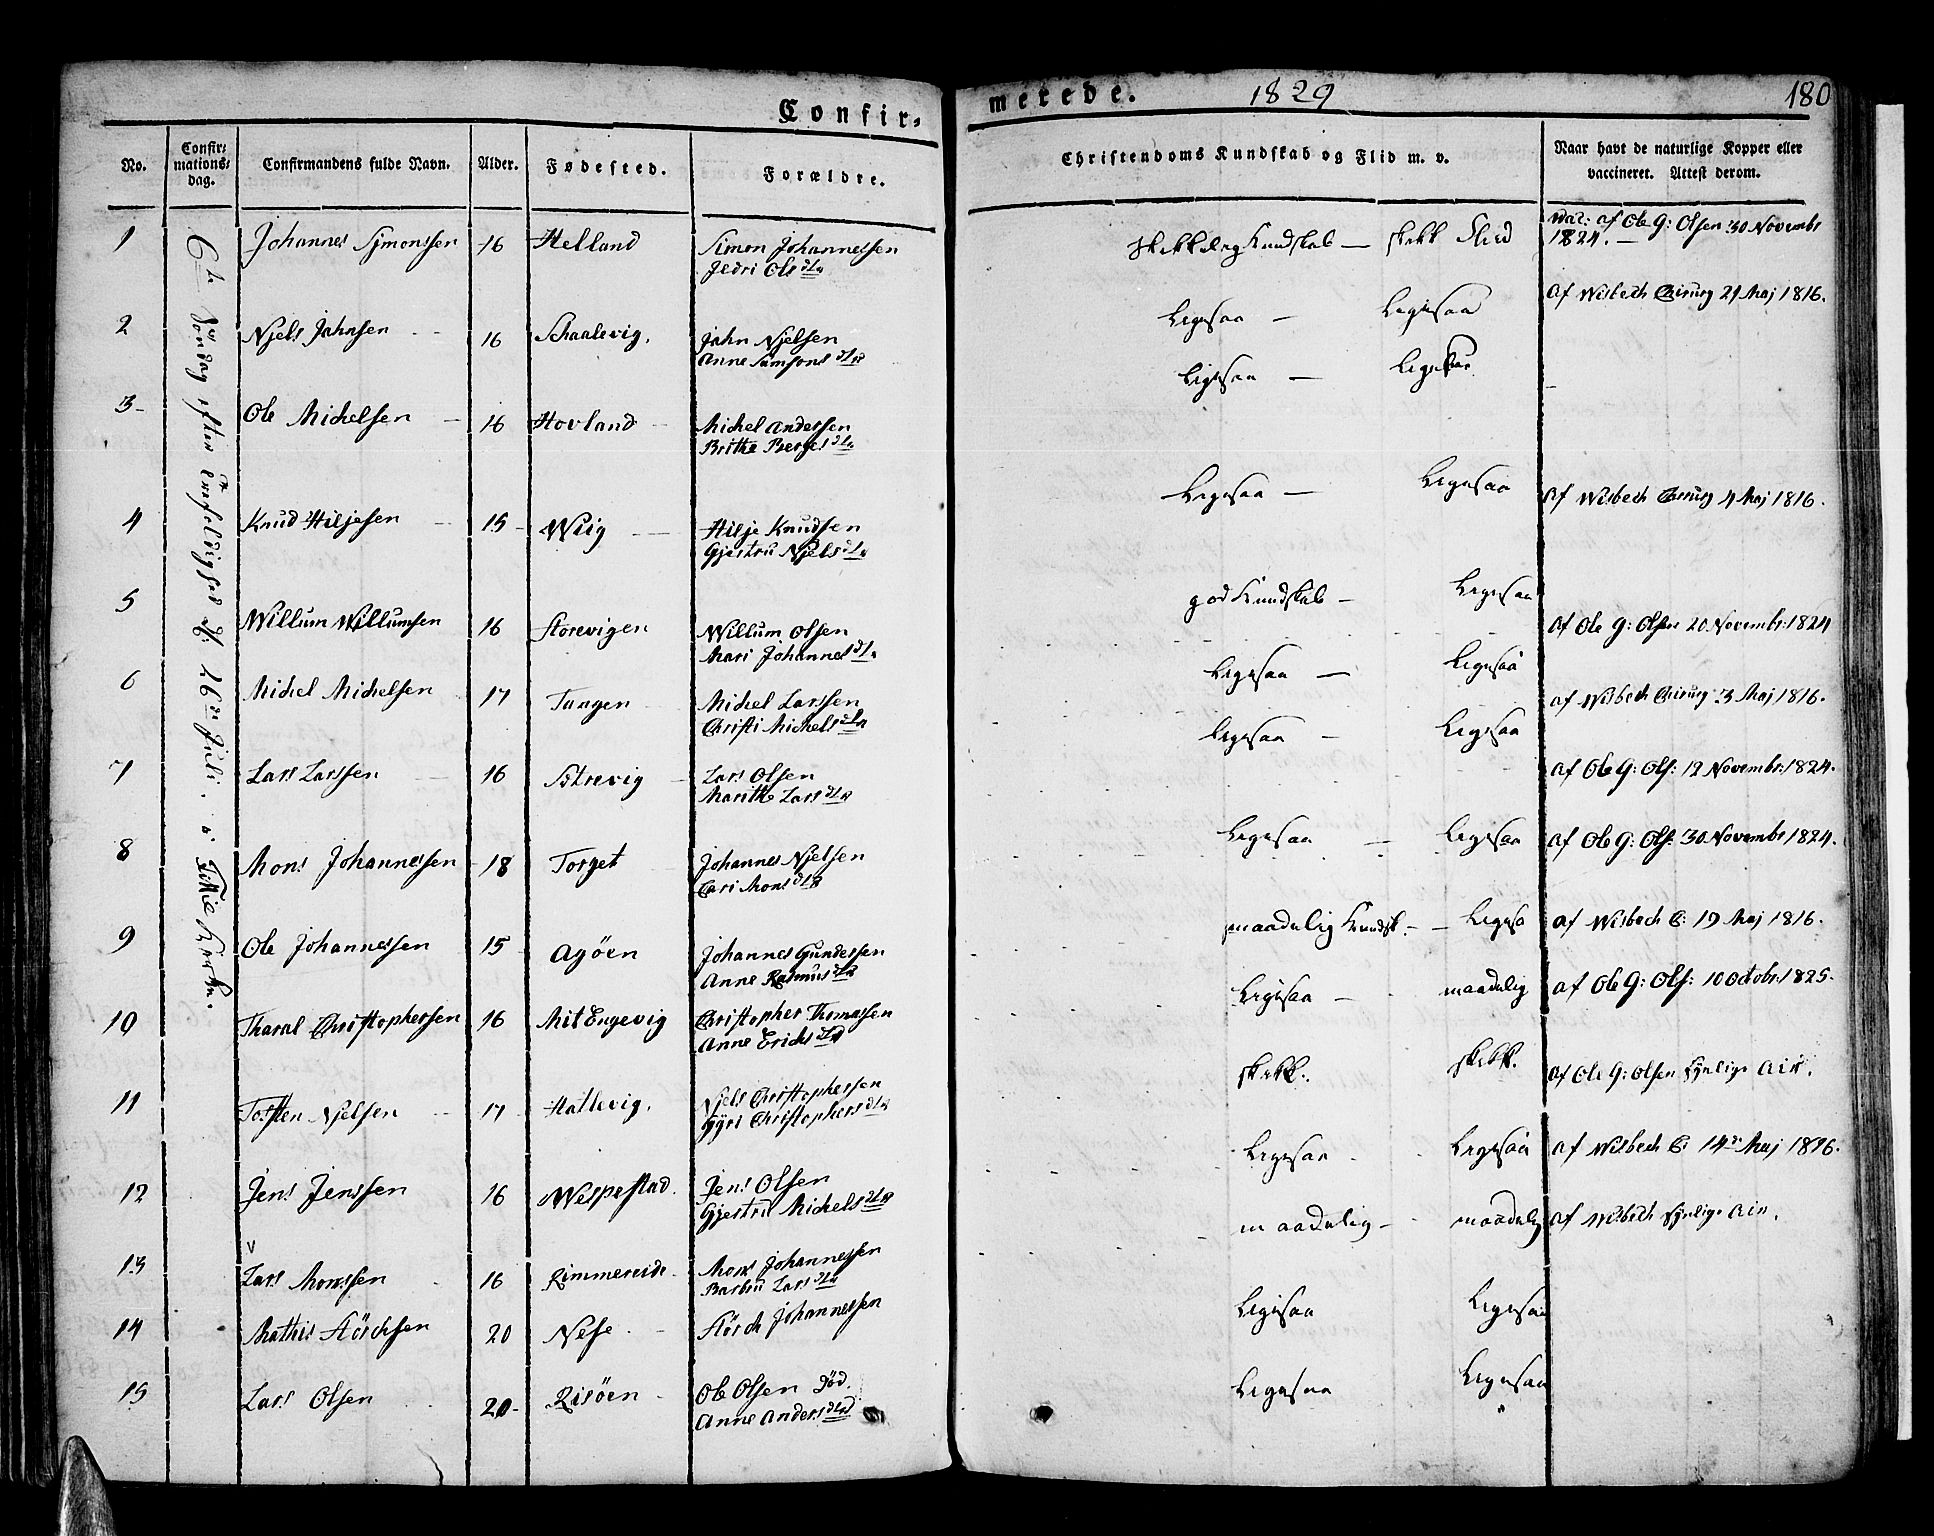 Confir-
meerede. 1829 180
No. Confirmations-dag. Confirmandens fulde Navn. Alder. Fødested. Forældre.
Christendoms Kundskab og Flid m. v. Naar havt de naturlige Kopper eller vaccineret. Attest derom.
6te Söndag efter Trefoldighed d. 26de Juli. i Fitie Kirke.
1 Johannes Simonssen 16 Helland Simon Johannessen
Jedri Olsdtr
skikkelig Kundskab — skikk Flid vac: af Ole G: Olsen 30 Novembr
1824. —
2 Njels Jahnsen 16 Skaalevig. Jahn Njelsen
Anne Samsonsdtr
Ligesaa — Ligesaa af Wisbech Chirurg 21 Maj 1816.
3 Ole Michelsen — 16 Hovland Michel Anderssen
Brithe Bergesdtr
Ligesaa — Ligesaa
4 Knud Hiljesen 15 Wiig Hilje Knudsen
Gjestru Njelsdtr
Ligesaa — Ligesaa af Wisbech Chirurg 4 Maj 1816.
5 Willum Willumsen 16 Storevigen Willum Olsen
Mari Johannesdtr
god Kundskab — Ligesaa af Ole G: Olsen 20 Novembr: 1824
6 Michel Michelsen 17 Tangen Michel Larssen
Christi Michelsdtr
Ligesaa — Ligesaa af Wisbech Chirurg 3 Maj 1816.
7 Lars Larssen 16 Östrevig Lars Olsen
Marithe Larsdtr
Ligesaa — Ligesaa af Ole G: Ols: 12 Novembr: 1824.
8 Mons Johannessen 18 Torget Johannes Njelsen
Cari Monsdtr
Ligesaa — Ligesaa af Ole G: Ols: 30 Novembr 1824.
9 Ole Johannessen 15 Agöen Johannes Gundessen
Anne Rasmusdtr
maadelig Kundsk. — Ligesa af Wisbech C: 19 Maj 1816.
10 Christophersen 16 MitEngevig Christopher Thomassen
Anne Erichsdtr
Ligesaa — maadelig af Ole G: Ols: 10 Octobr: 1825.
11 Tosten Njelsen 17 Hatlevig. Njels Christophersen
Gyri Christophersdtr
skikk. skikk. af Ole G: Olsen synlige Air.
12 Jens Jenssen 16 Wespestad. Jens Olsen
Gjestru Michelsdtr
Ligesaa Ligesaa af Wisbech C: 14de Maj 1816.
13 Lars Monssen 16 Rimmereide Mons Johannessen
Barbru Larsdtr
maadelig — maadelig af Wisbech synlige Air.
14 Mathis Störchsen 20 Nese Störch Johannessen
Ligesaa Ligesaa
15 Lars Olsen 20 Risöen Ole Olsen Död.
Anne Andersdtr
Ligesaa Ligesaa